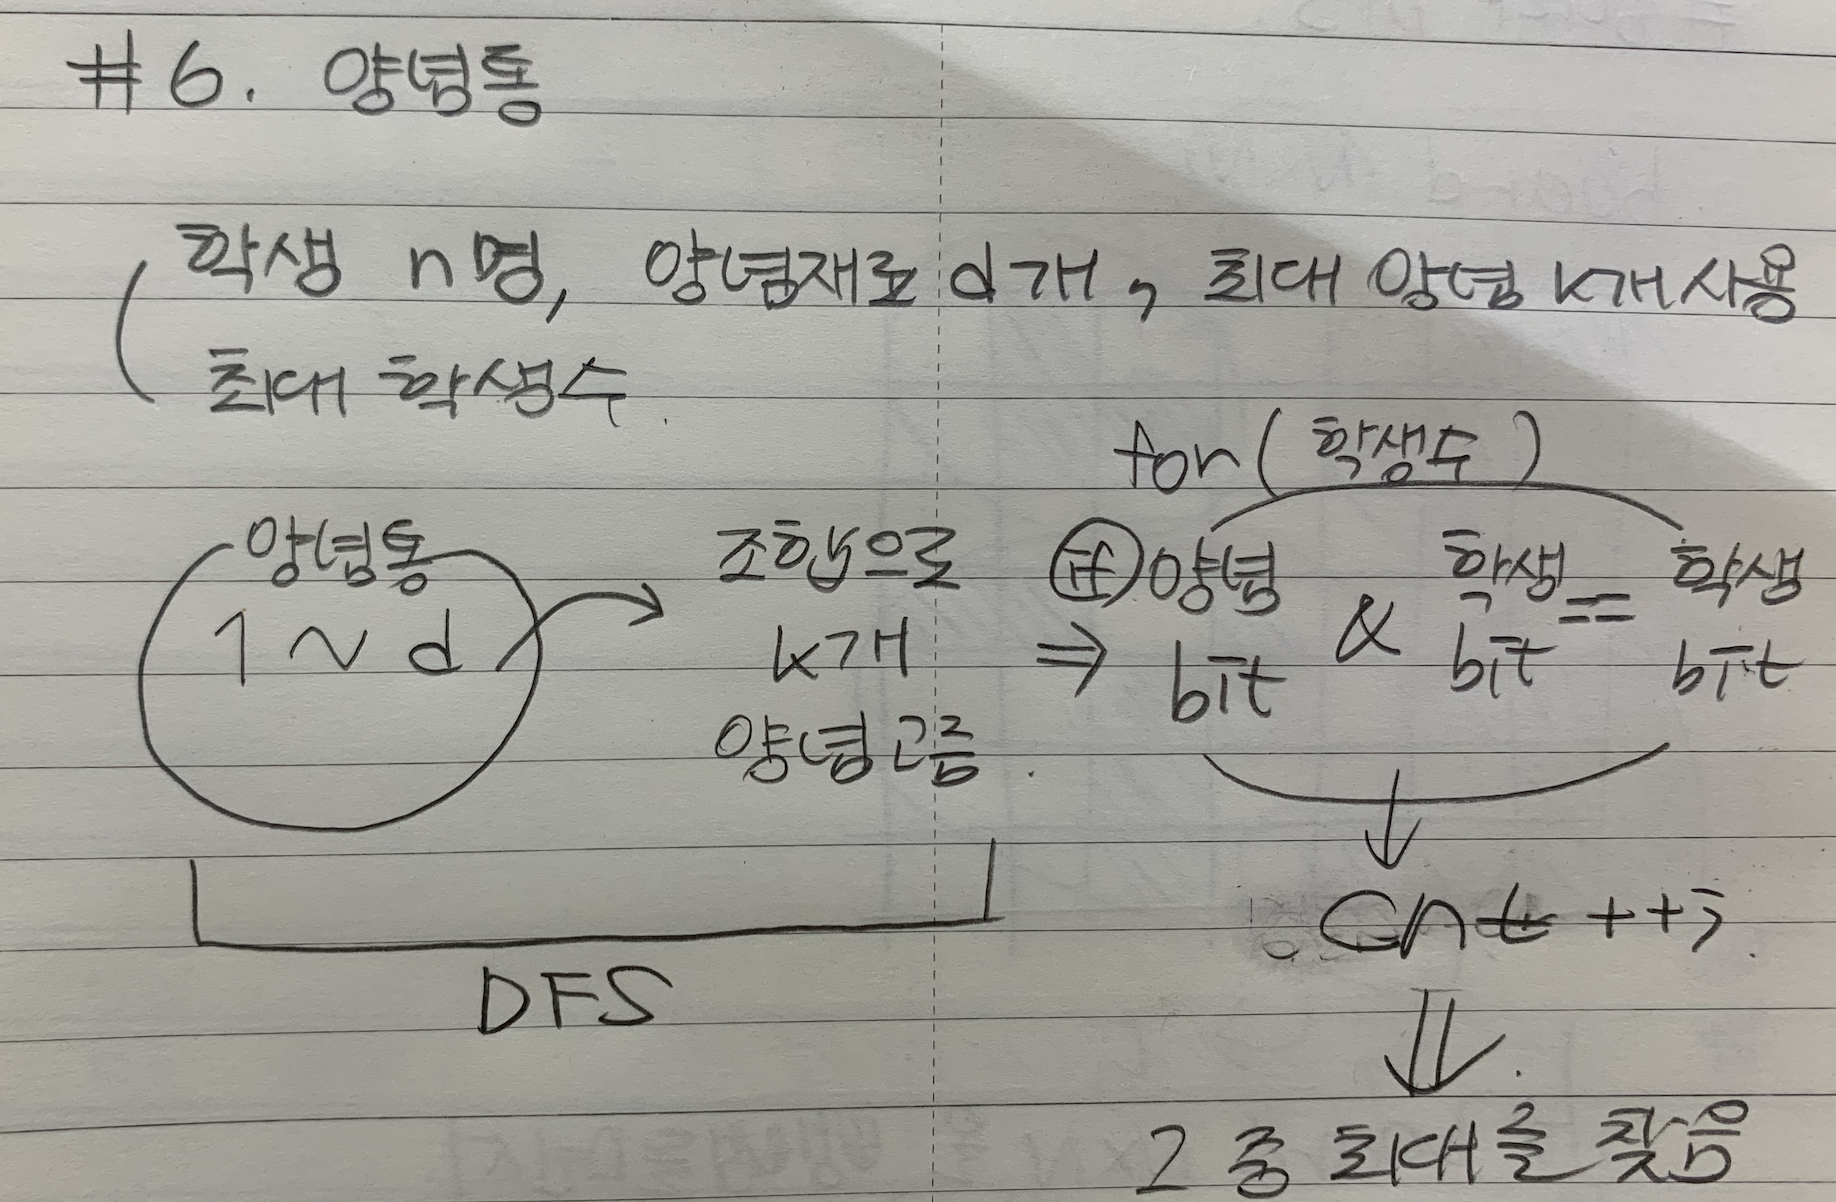 #6. 양념통
학생 n명, 양념재료 d개, 최대 양념 k개 사용
최대 학생수
양념통
1 ~ d
조합으로
k개
양념 고름.
DFS
for( 학생수 )
if 양념 bit & 학생 bit == 학생 bit
⇒
cnt ++;
그 중 최대를 찾음